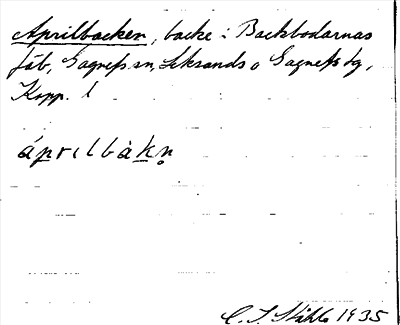 Aprilbacken, backe i Backbodarnas
fäb, Gagnefs sn, Leksands o Gagnefs tg,
Kopp. l
áprɪlbàkn̥
C. I. Ståhle 1935